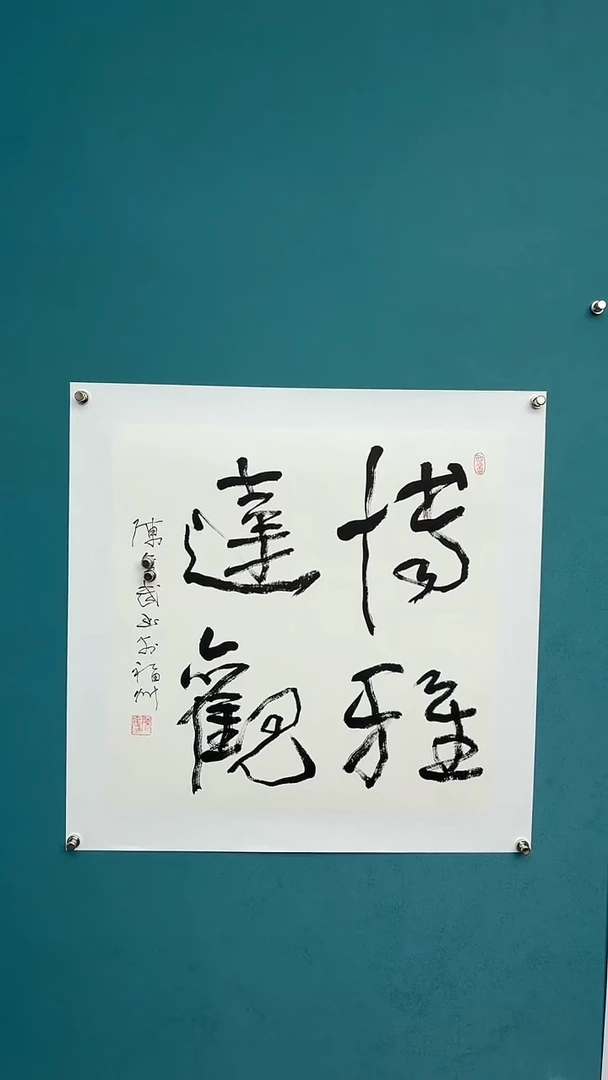 博雅
達觀
陳金武书於福州